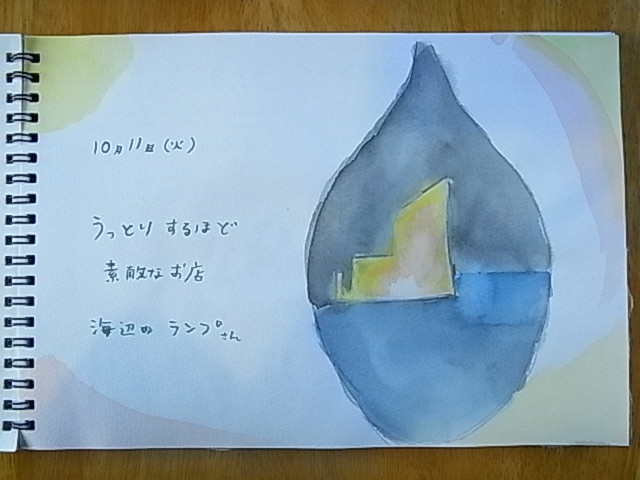 10月11日(火)
うっとりするほど
素敵なお店
海辺のランプさん